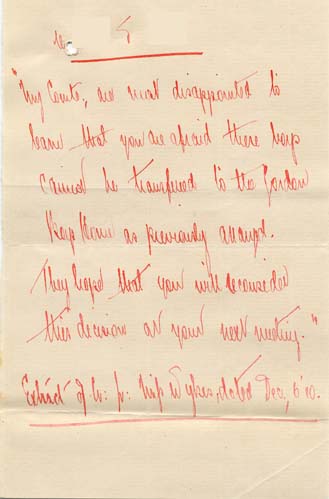 re S
"My Comtee, are most disappointed to
learn that you are afraid these boys
cannot be transferred to the Gordon
Boys Home as previously arranged.
They hoped that you will reconsider
this decision at your next meeting."
Extract of from Miss Wykes, dated Dec, 6 '10.